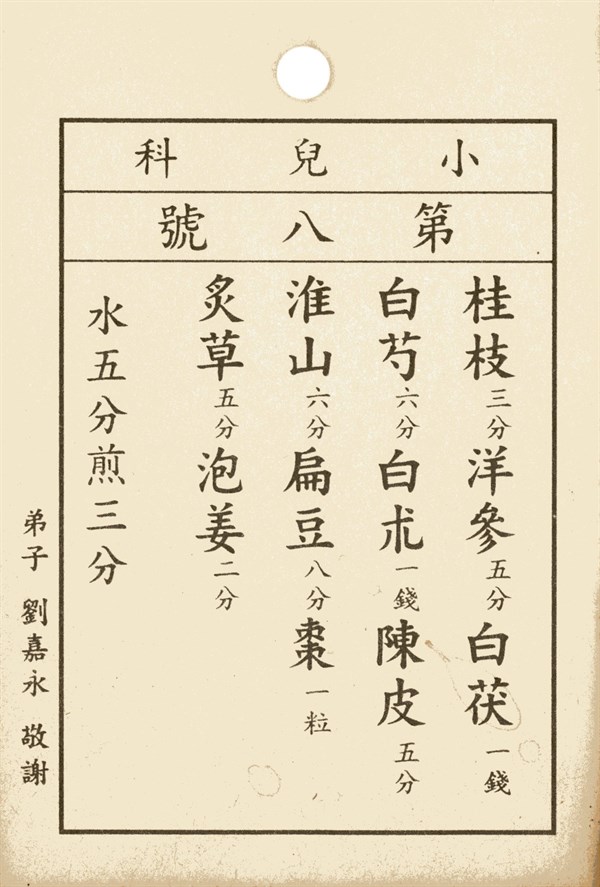 小兒科
第八號
桂枝三分洋參五分白茯一錢
白芍六分白朮一錢陳皮五分
淮山六分扁豆八分棗一粒
炙草五分泡姜二分
水五分煎三分
弟子 劉嘉永 敬謝